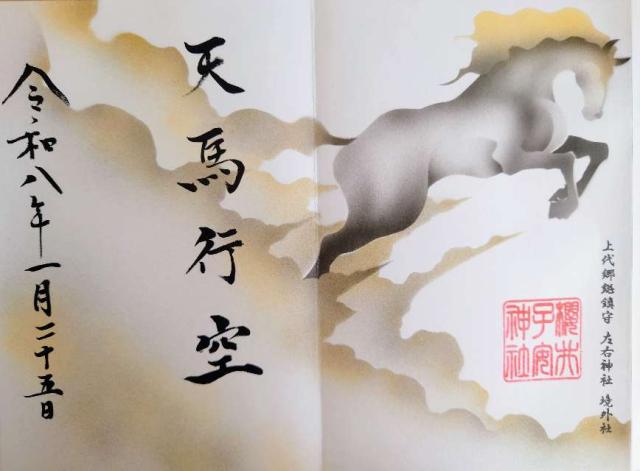 上代郷鎮守 左右神社 境外社
櫻木
子安
神社
天馬行空
令和八年一月二十五日